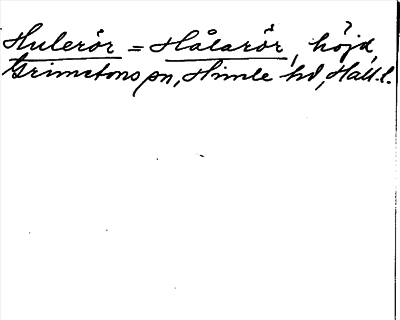 Hulerör = Hålarör, höjd,
Grimetons sn, Himle hd, Hall.l.